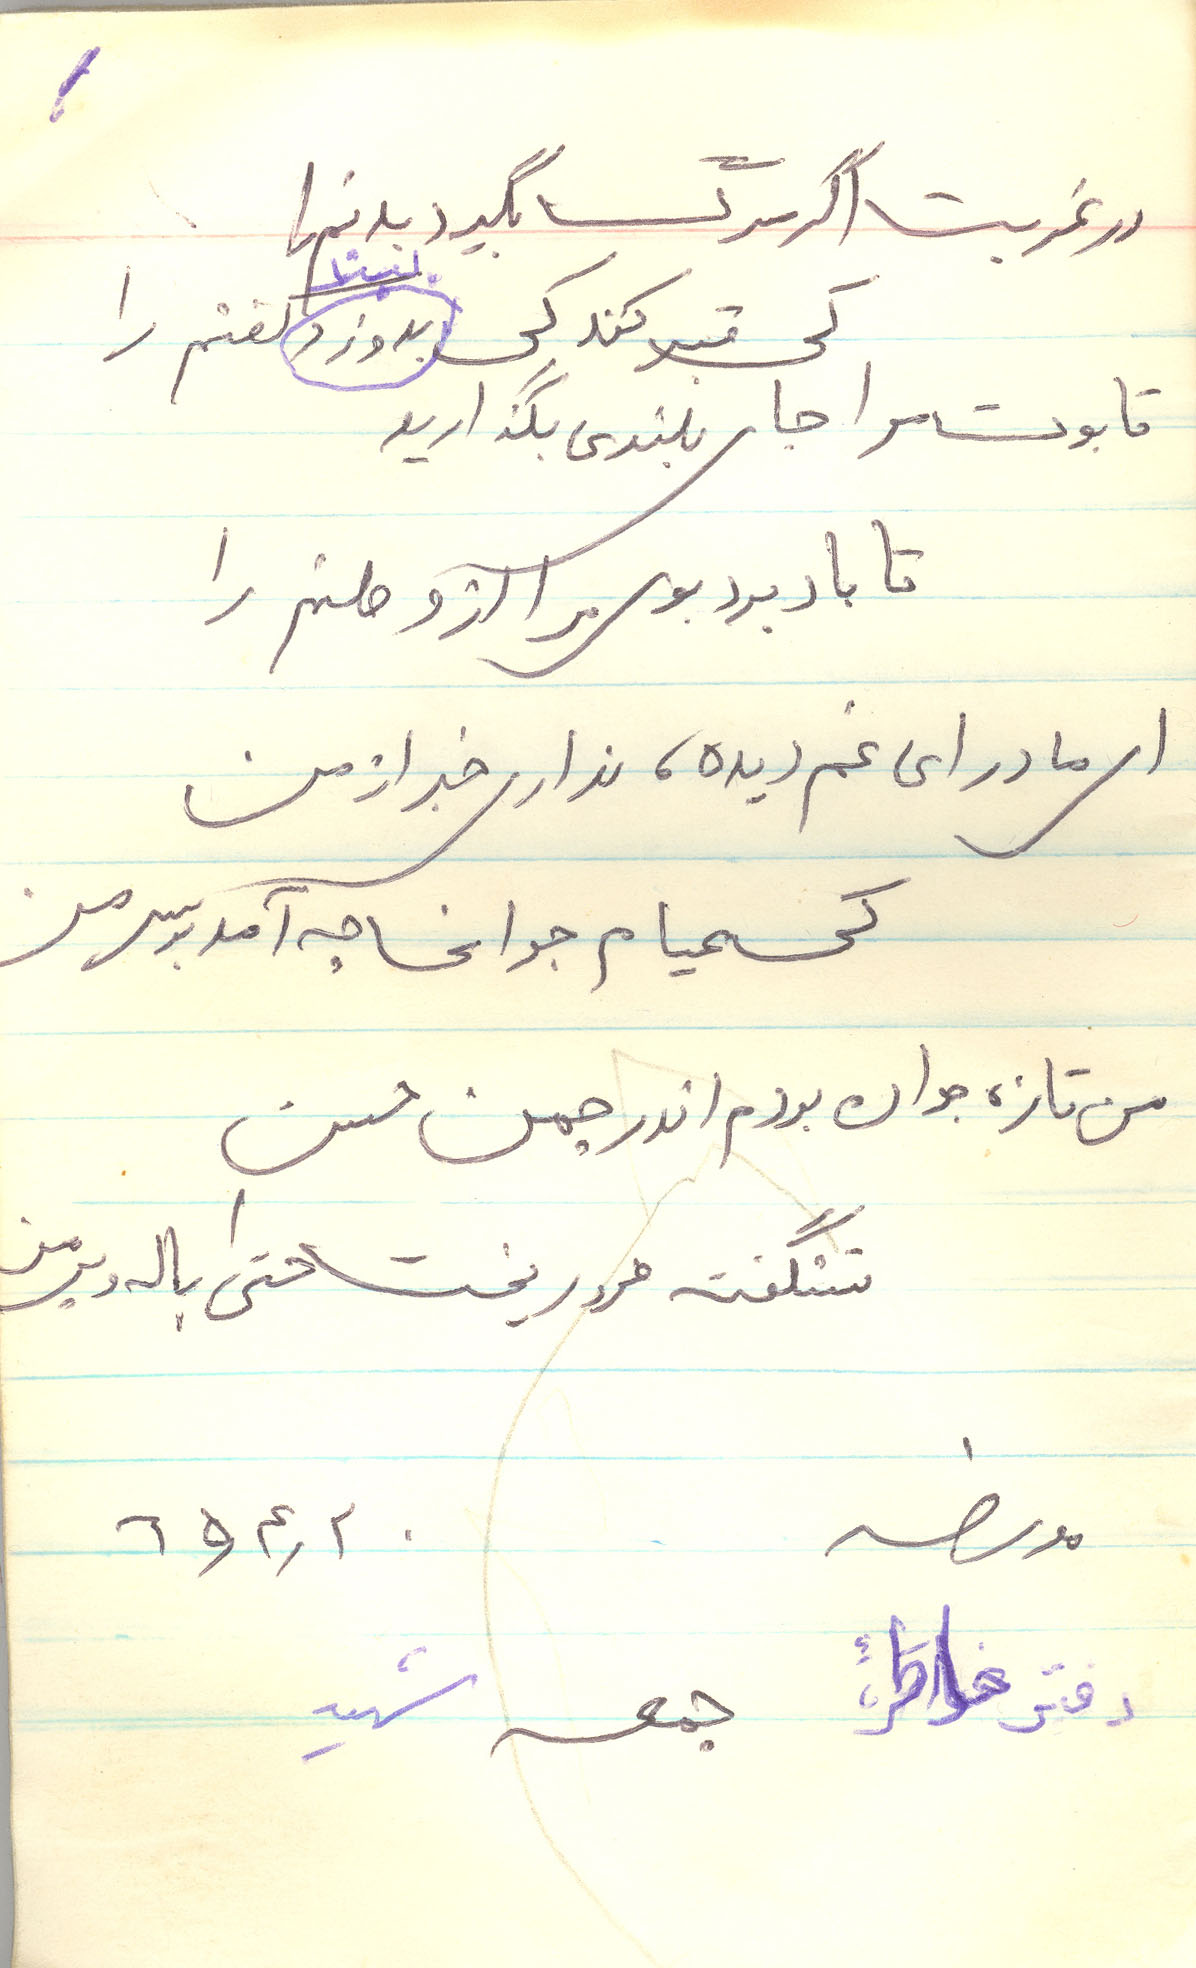 در غربت اگر مرگ بگیرد بدنم را
کی قبر کند کی بدوزد کفنم را
تابوت مرا جای بلندی بگذارید
تا باد برد بوی مرا از وطنم را
ای مادر ای غم دیده، نداری خبر از من
کی میام جوانها چه آمد بسر من
من تازه جوان بودم اندر چمن حسن
نشگفته فرو ریخت حتی باله و پر من
مورخه ۶۵ر۴ر۲۰
دفتر خاطرهٔ جمعه شهید